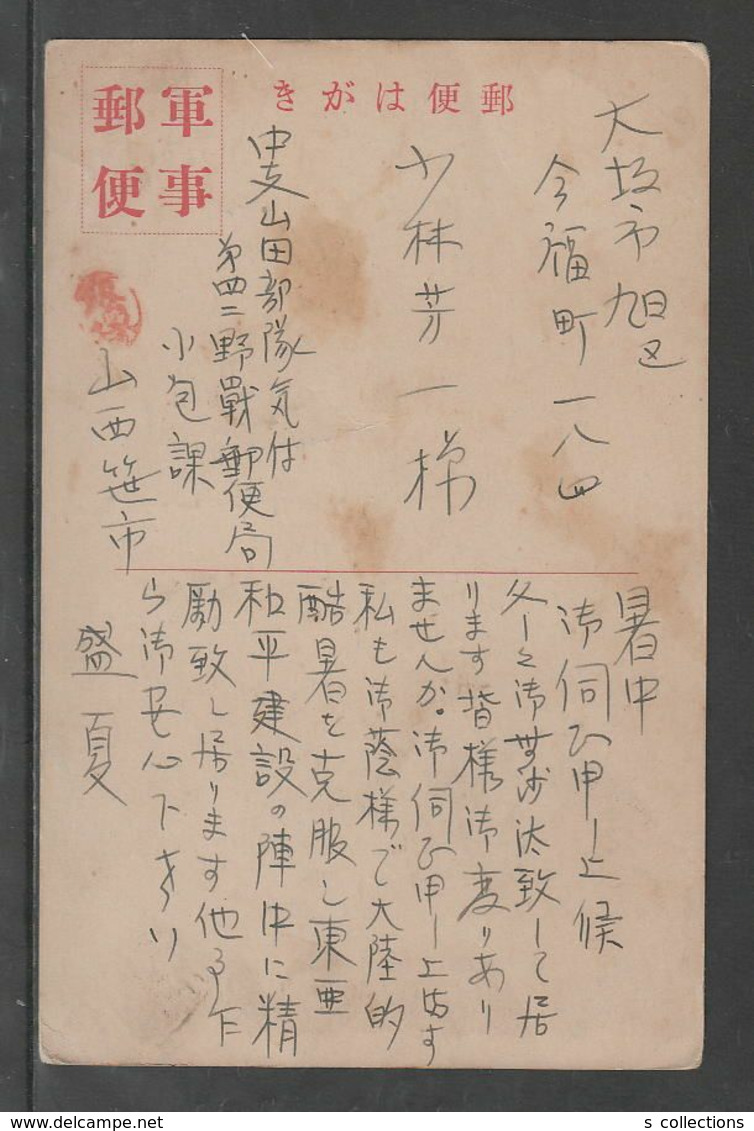 郵便はがき
軍事
郵便
大坂市旭区
今福町一八四
小林芳一様
中支山田部隊気付
第四二野戰郵便局
小包課
山西笹市
暑中
御伺ひ申し上候
久しく御無沙汰致して居
ります皆様御変りあり
ませんか。御伺ひ申し上げます
私も御蔭様で大陸的
酷暑を克服し東亜
和平建設の陣中に精
励致し居ります他事乍
ら御安心下さい
盛夏
s collections